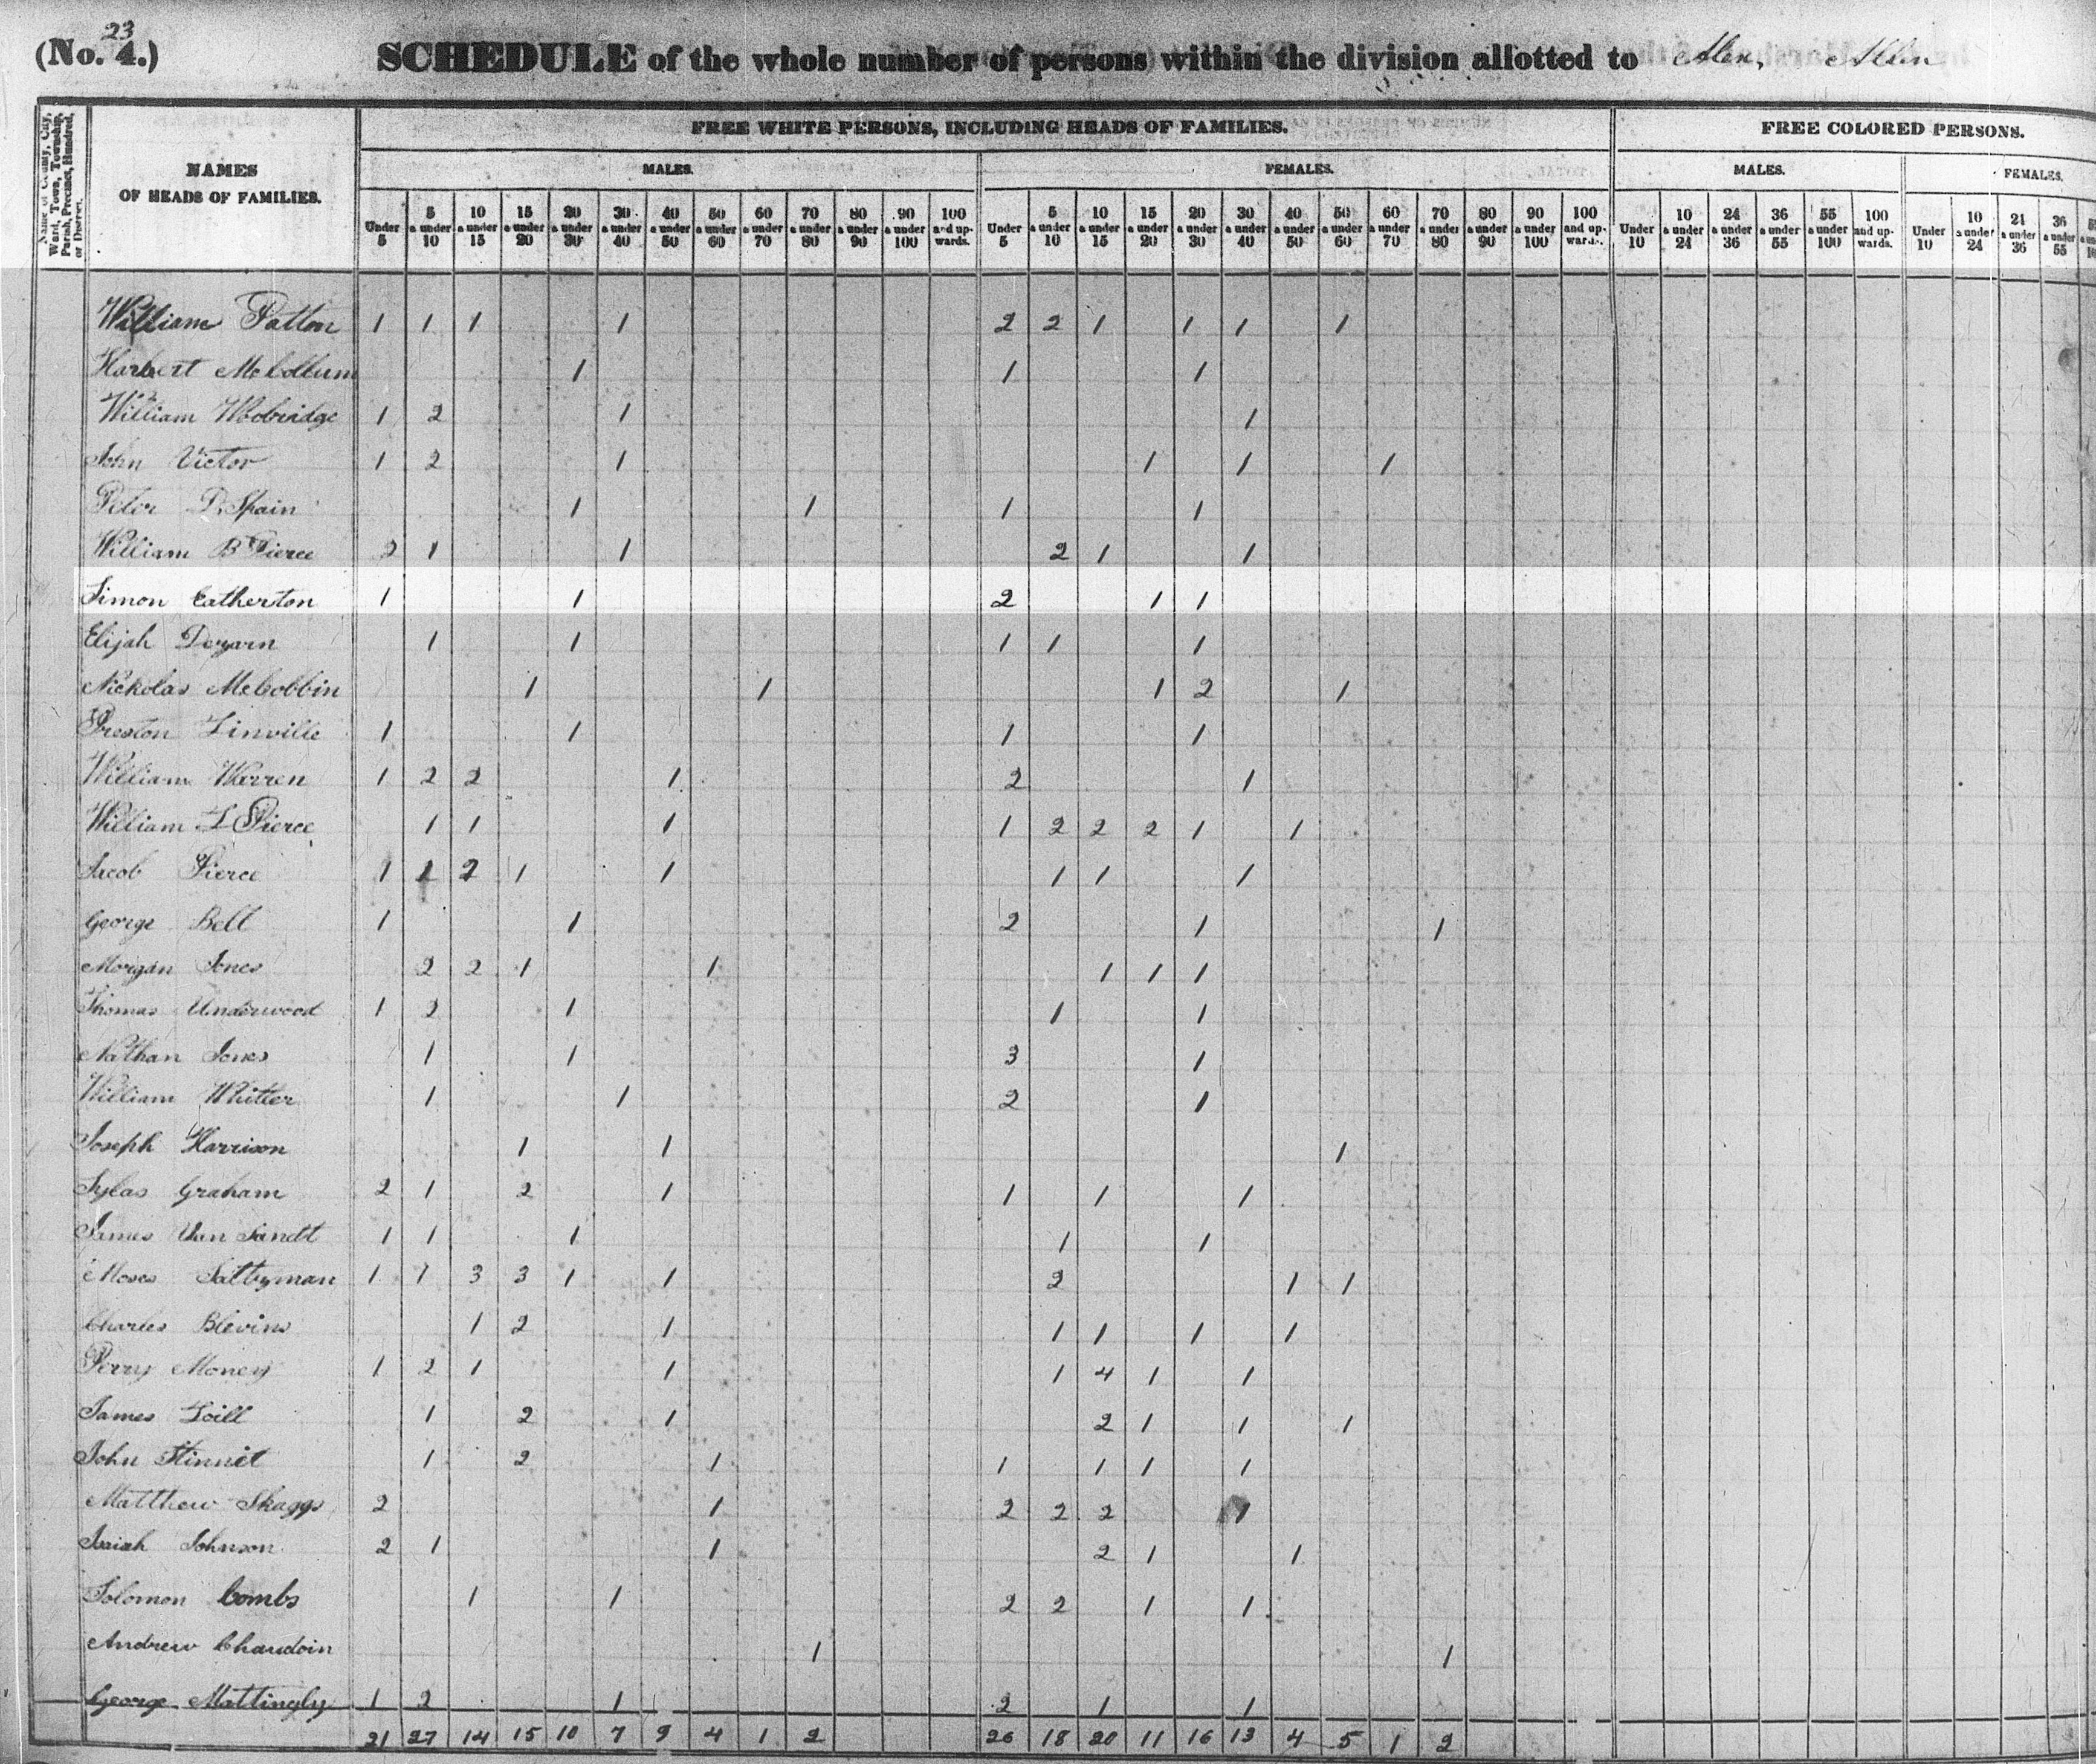 23
(No. 4.) SCHEDULE of the whole number of persons within the division allotted to Alex. Allen
Name of County, City, Ward, Town, Township, Parish, Precinct, Hundred, or District.
NAMES OF HEADS OF FAMILIES.
FREE WHITE PERSONS, INCLUDING HEADS OF FAMILIES.
FREE COLORED PERSONS.
MALES. FEMALES. MALES. FEMALES.
Under 5 5 & under 10 10 & under 15 15 & under 20 20 & under 30 30 & under 40 40 & under 50 50 & under 60 60 & under 70 70 & under 80 80 & under 90 90 & under 100 100 and upwards. Under 5 5 & under 10 10 & under 15 15 & under 20 20 & under 30 30 & under 40 40 & under 50 50 & under 60 60 & under 70 70 & under 80 80 & under 90 90 & under 100 100 and upwards. Under 10 10 & under 24 24 & under 36 36 & under 55 55 & under 100 100 and upwards. Under 10 10 & under 24 24 & under 36 36 & under 55
William Patton 1 1 1 1 2 2 1 1 1 1
Harbert McCollum 1 1 1
William Woobridge 1 2 1 1
John Victor 1 2 1 1 1 1
Peter D. Spain 1 1 1 1
William B Pierce 2 1 1 2 1 1
Simon Catherton 1 1 2 1 1
Elijah Dezarn 1 1 1 1 1
Nickolas McCobbin 1 1 1 2 1
Preston Linville 1 1 1 1
William Warren 1 2 2 1 2 1
William L Pierce 1 1 1 1 2 2 2 1 1
Jacob Pierce 1 1 2 1 1 1 1 1
George Bell 1 1 2 1 1
Morgan Jones 2 2 1 1 1 1 1
Thomas Underwood 1 2 1 1 1
Nathan Jones 1 1 3 1
William Whitler 1 1 2 1
Joseph Harrison 1 1 1
Sylas Graham 2 1 2 1 1 1 1
James Van Sandt 1 1 1 1 1
Moses Saltsman 1 1 3 3 1 1 2 1 1
Charles Blevins 1 2 1 1 1 1 1
Perry Money 1 2 1 1 1 4 1 1
James 1 2 1 2 1 1 1
John Stinnet 1 2 1 1 1 1 1
Matthew Skaggs 2 1 2 2 2 1
Isaiah Johnson 2 1 1 2 1 1
Solomon Combs 1 1 2 2 1 1
Andrew Chaudoin 1 1
George Mattingly 1 2 1 2 1 1
21 27 14 15 10 7 9 4 1 2 26 18 20 11 16 13 4 5 1 2